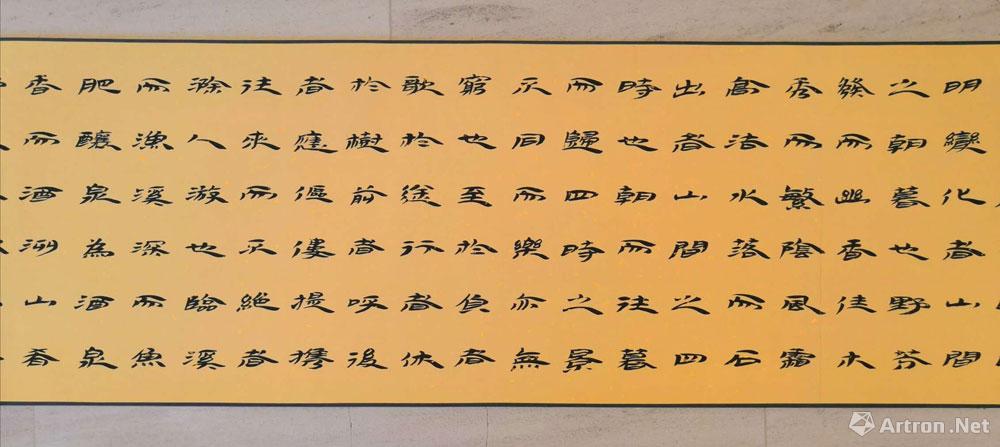 明變化者山間
之朝暮也野芬
發而幽香佳木
秀而繁陰風霜
高洁水落而石
出者山間之四
時也朝而往暮
而歸四時之景
不同而樂亦無
窮也至於負者
歌於途行者休
於樹前者呼後
者應傴僂提攜
往來而不絕者
滁人游也臨溪
而漁溪深而魚
肥釀泉為酒泉
香而酒洌山肴
Artron.Net